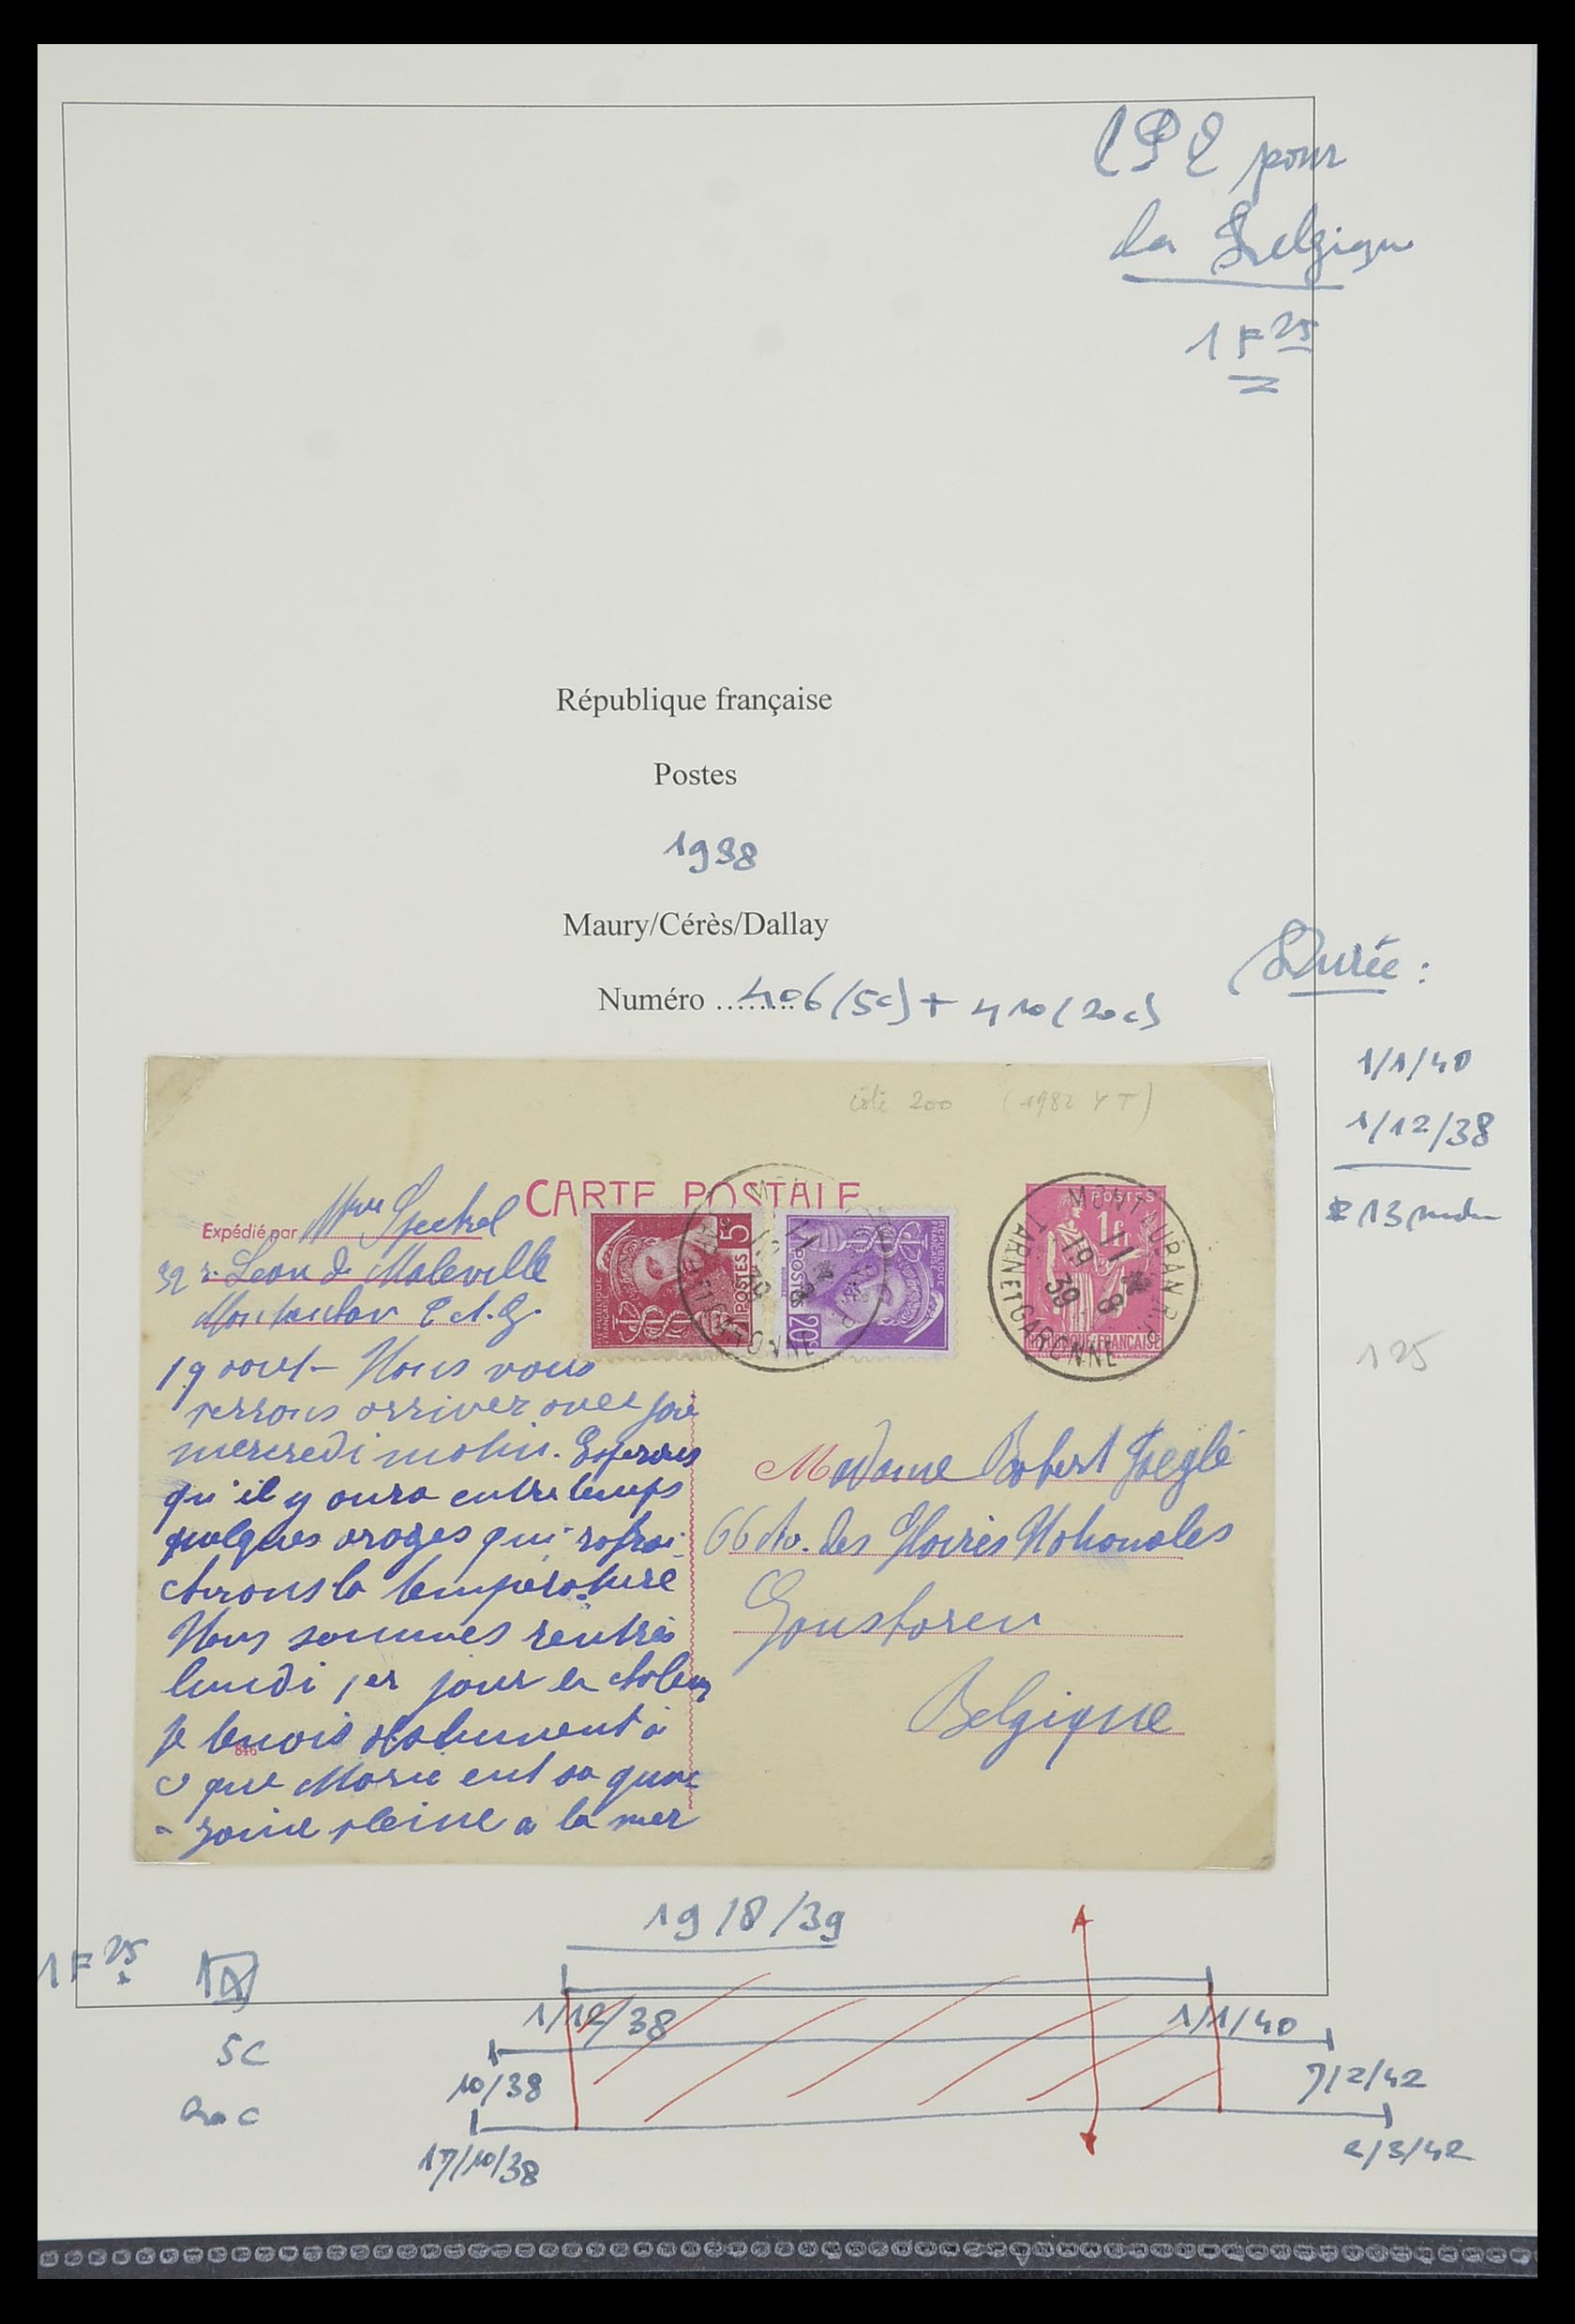 pour
la Belgique
1F25
République française
Postes
1938
Maury/Cérès/Dallay
Numéro ........ 406 (5c) + 410 (20c)
Durée :
1/1/40
1/12/38
13
125
côte 200 (1982 YT)
CARTE POSTALE
Expédié par Mme
32 r. Léon de Maleville
Montauban T. et. G.
19 août – Nous vous
verrons arriver avec joie
mercredi matin. Espérons
qu'il y aura entre temps
quelques orages qui rafrai-
chirons la température
Nous sommes rentrés
lundi 1er jour de chaleur
Je tenais absolument à
ce que Marie eut sa quin-
- zaine pleine a la mer
846
RÉPUBLIQUE FRANÇAISE
POSTES
5
RÉPUBLIQUE FRANÇAISE
POSTES
20c
POSTES
1f
RÉPUBLIQUE FRANÇAISE
MONTAUBAN R.P.
TARN ET GARONNE
11
19 - 8
39
Madame Robert
66 Av. des Gloires Nationales
Ganshoren
Belgique
19/8/39
1F25
1/12/38
1/1/40
5c
10/38
7/2/42
20c
17/10/38
2/3/42